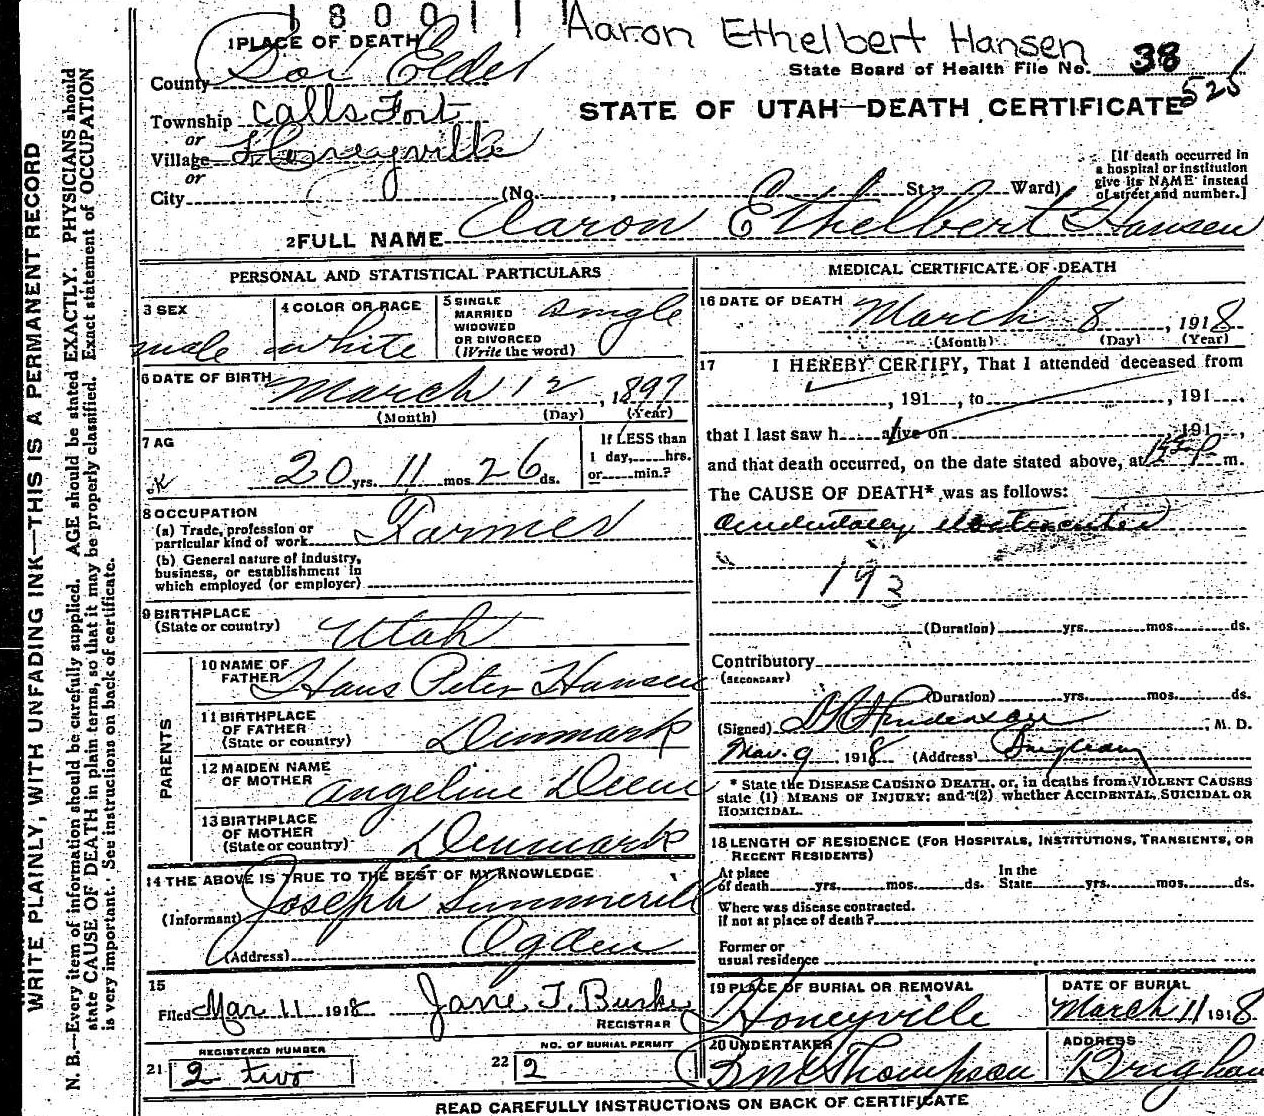 1 8 0 0 1 1 1
Aaron Ethelbert Hansen
1 PLACE OF DEATH
State Board of Health File No. 38
County Box Elder
525
STATE OF UTAH—DEATH CERTIFICATE
Township Calls Fort
or
Village Honeyville
or
City (No. , St. Ward)
[If death occurred in
a hospital or institution
give its NAME instead
of street and number.]
2 FULL NAME Aaron Ethelbert Hansen
PERSONAL AND STATISTICAL PARTICULARS
3 SEX
male
4 COLOR OR RACE
white
5 SINGLE
MARRIED
WIDOWED
OR DIVORCED
(Write the word)
single
6 DATE OF BIRTH March 12, 1897
(Month) (Day) (Year)
7 AG
20 yrs. 11 mos. 26 ds.
If LESS than
1 day, hrs.
or min.?
8 OCCUPATION
(a) Trade, profession or
particular kind of work Farmer
(b) General nature of industry,
business, or establishment in
which employed (or employer)
9 BIRTHPLACE
(State or country) Utah
PARENTS
10 NAME OF
FATHER Hans Peter Hansen
11 BIRTHPLACE
OF FATHER
(State or country) Denmark
12 MAIDEN NAME
OF MOTHER Angeline
13 BIRTHPLACE
OF MOTHER
(State or country) Denmark
14 THE ABOVE IS TRUE TO THE BEST OF MY KNOWLEDGE
(Informant) Joseph Summerill
(Address) Ogden
15
Filed Mar 11 1918 Jane T. Burke
REGISTRAR
REGISTERED NUMBER
21 2 two
NO. OF BURIAL PERMIT
22 2
MEDICAL CERTIFICATE OF DEATH
16 DATE OF DEATH March 8, 1918
(Month) (Day) (Year)
17 I HEREBY CERTIFY, That I attended deceased from
, 191 , to , 191 ,
that I last saw h alive on 191 ,
and that death occurred, on the date stated above, at m.
The CAUSE OF DEATH* was as follows:
192
(Duration) yrs. mos. ds.
Contributory
(SECONDARY)
(Duration) yrs. mos. ds.
(Signed) , M. D.
Mar. 9 1918 (Address) Brigham
* State the DISEASE CAUSING DEATH, or, in deaths from VIOLENT CAUSES
state (1) MEANS OF INJURY; and (2) whether ACCIDENTAL, SUICIDAL OR
HOMICIDAL.
18 LENGTH OF RESIDENCE (FOR HOSPITALS, INSTITUTIONS, TRANSIENTS, OR
RECENT RESIDENTS)
At place
of death yrs. mos. ds.
In the
State yrs. mos. ds.
Where was disease contracted.
if not at place of death?
Former or
usual residence
19 PLACE OF BURIAL OR REMOVAL
Honeyville
DATE OF BURIAL
March 11 1918
20 UNDERTAKER
Thompson
ADDRESS
Brigham
READ CAREFULLY INSTRUCTIONS ON BACK OF CERTIFICATE
WRITE PLAINLY, WITH UNFADING INK—THIS IS A PERMANENT RECORD
N. B.—Every item of information should be carefully supplied. AGE should be stated EXACTLY. PHYSICIANS should
state CAUSE OF DEATH in plain terms, so that it may be properly classified. Exact statement of OCCUPATION
is very important. See instructions on back of certificate.